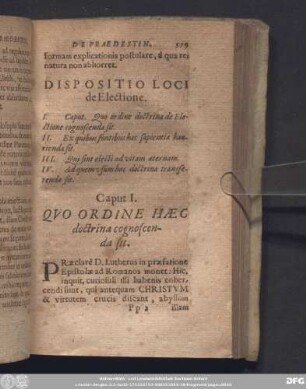 DE PRAEDESTIN.
formam explicationis postulare, á qua rei
natura non abhorret.
DISPOSITIO LOCI
de Electione.
I. Caput. Quo ordine doctrina de Ele-
ctione cognoscenda sit.
II. Ex quibus fontibus hæc sapientia hau-
rienda sit.
III. Qui sint electi ad vitam æternam.
IV. Ad quem usum hæc doctrina transfe-
renda sit.
Caput I.
QVO ORDINE HÆC
doctrina cognoscen-
da sit.
PRæclarè D. Lutherus in præfatione
Epistolæ ad Romanos monet: Hic,
inquit, curiosuli isti habenis coher-
cendi sunt, qui antequam CHRISTVM
& virtutem crucis discant, abyssum
Pp 2 istam